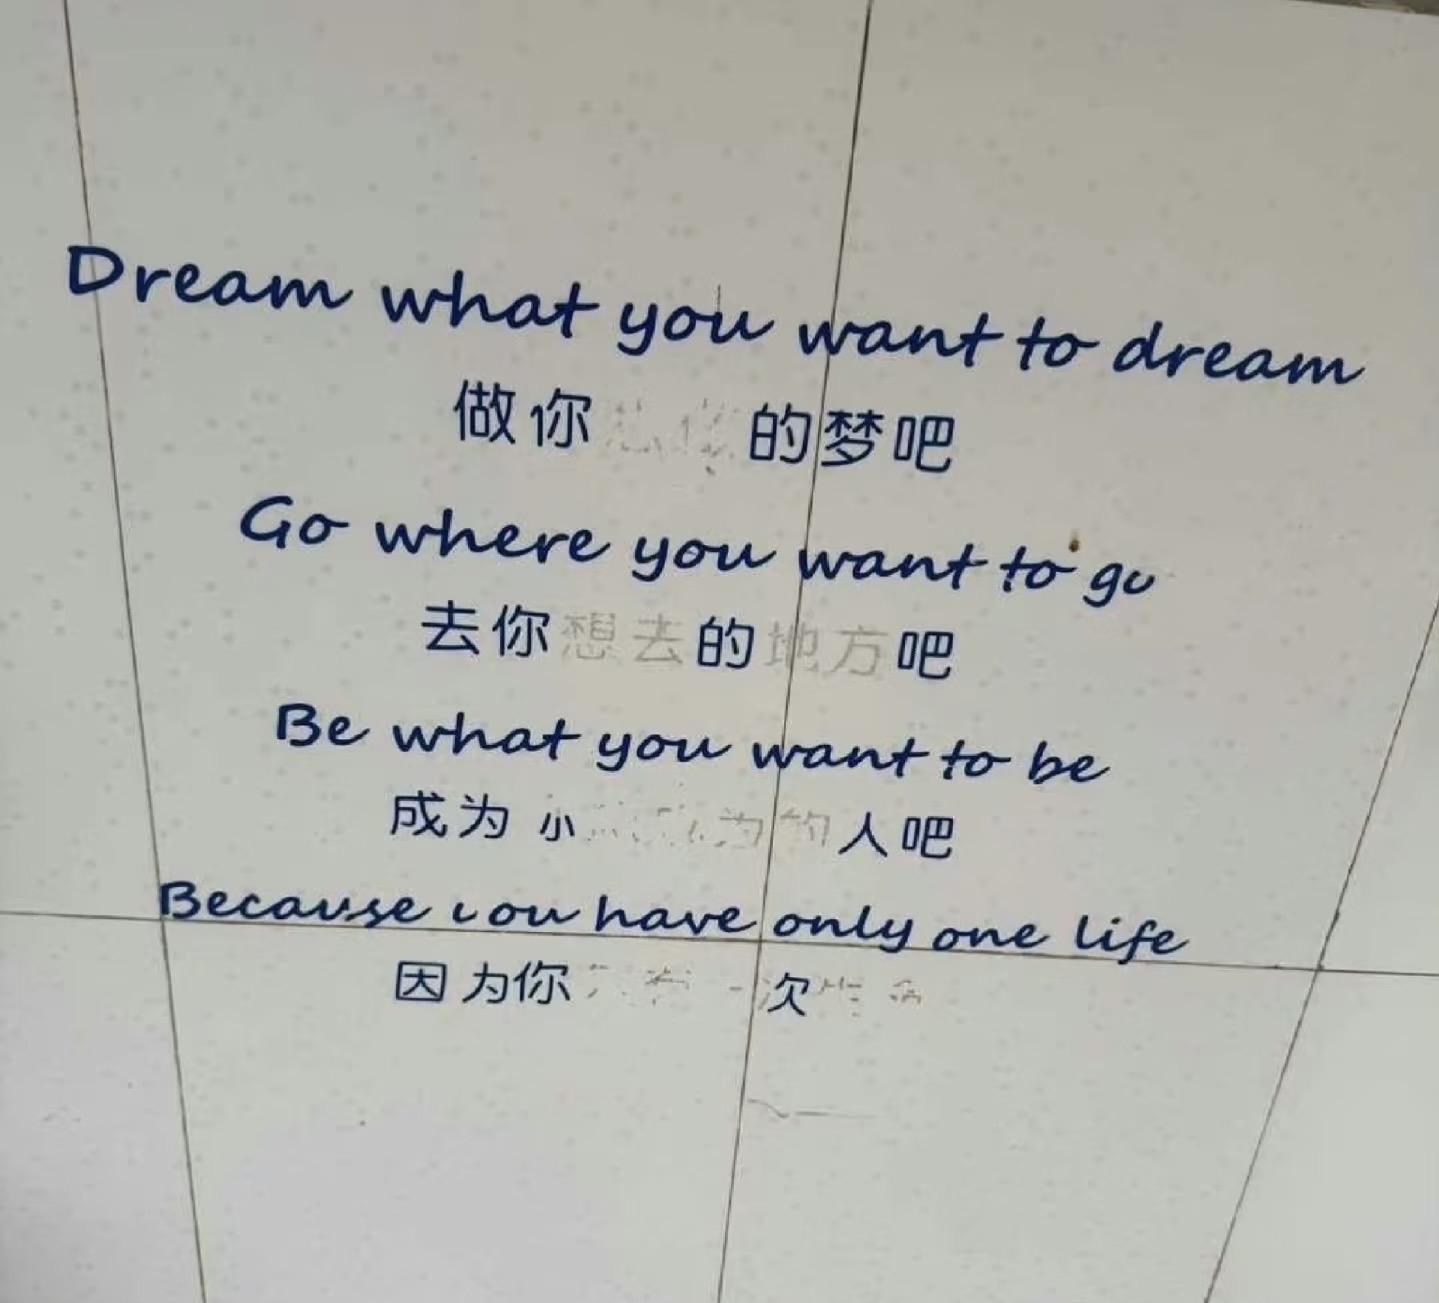 Dream what you want to dream
做你的梦吧
Go where you want to go
去你想去的地方吧
Be what you want to be
成为小为的人吧
Because you have only one life
因为你次